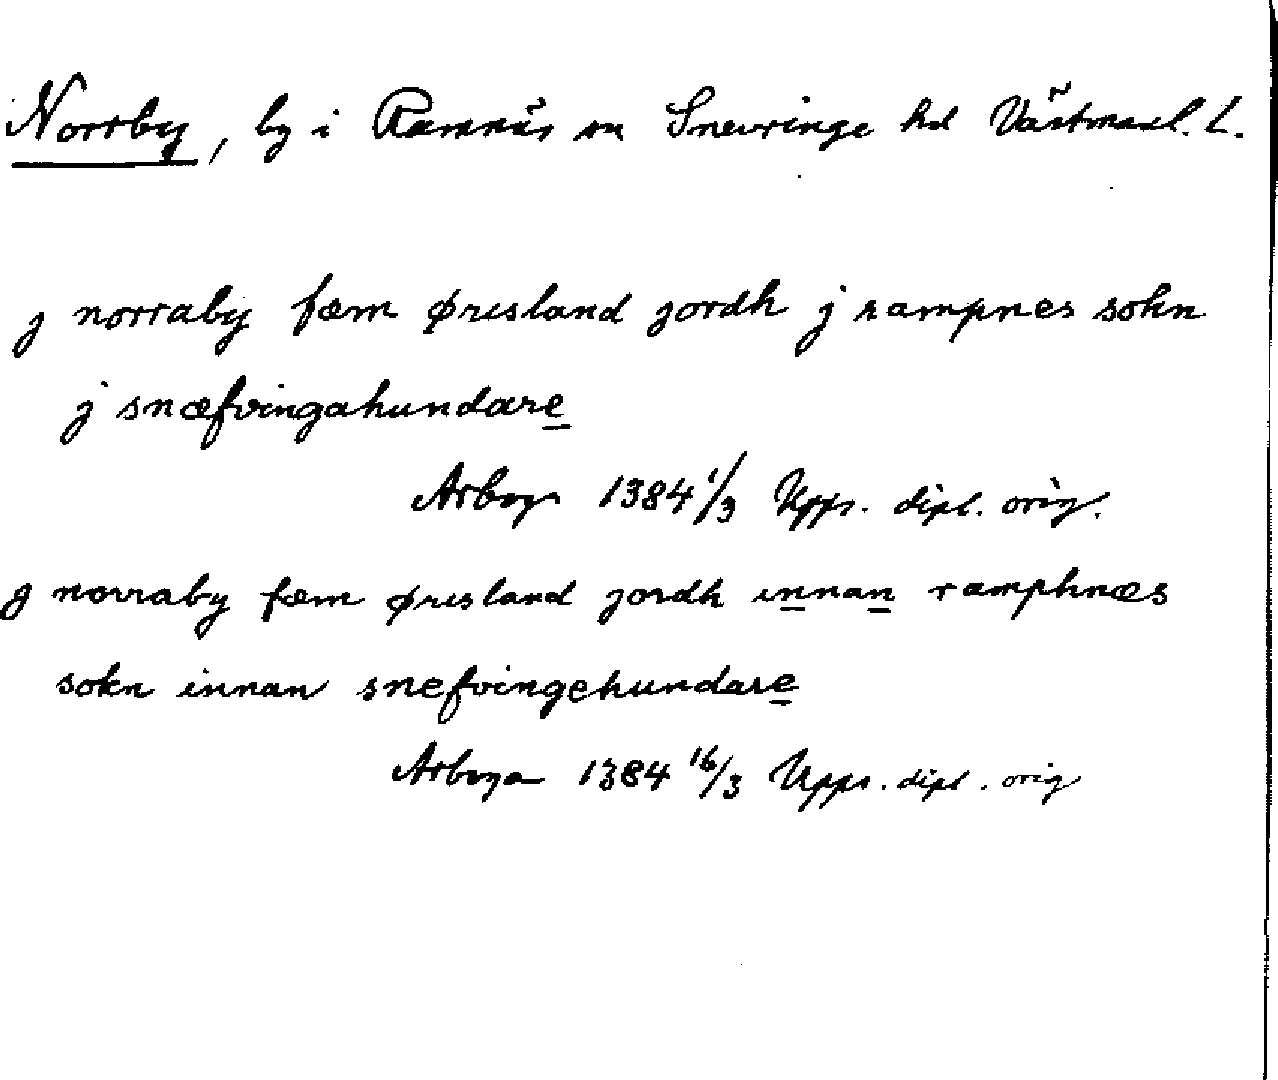 Norrby, by i Ramnäs sn Snevringe hd Västmanl. L.
j norraby fæm ørisland jordh j rampnes sokn
j snæfvingahundare
Arboga 1384 1/3 Upps. dipl. orig.
j norraby fæm ørisland jordh innan ramphnæs
sokn innan snefvingehundare
Arboga 1384 16/3 Upps. dipl. orig